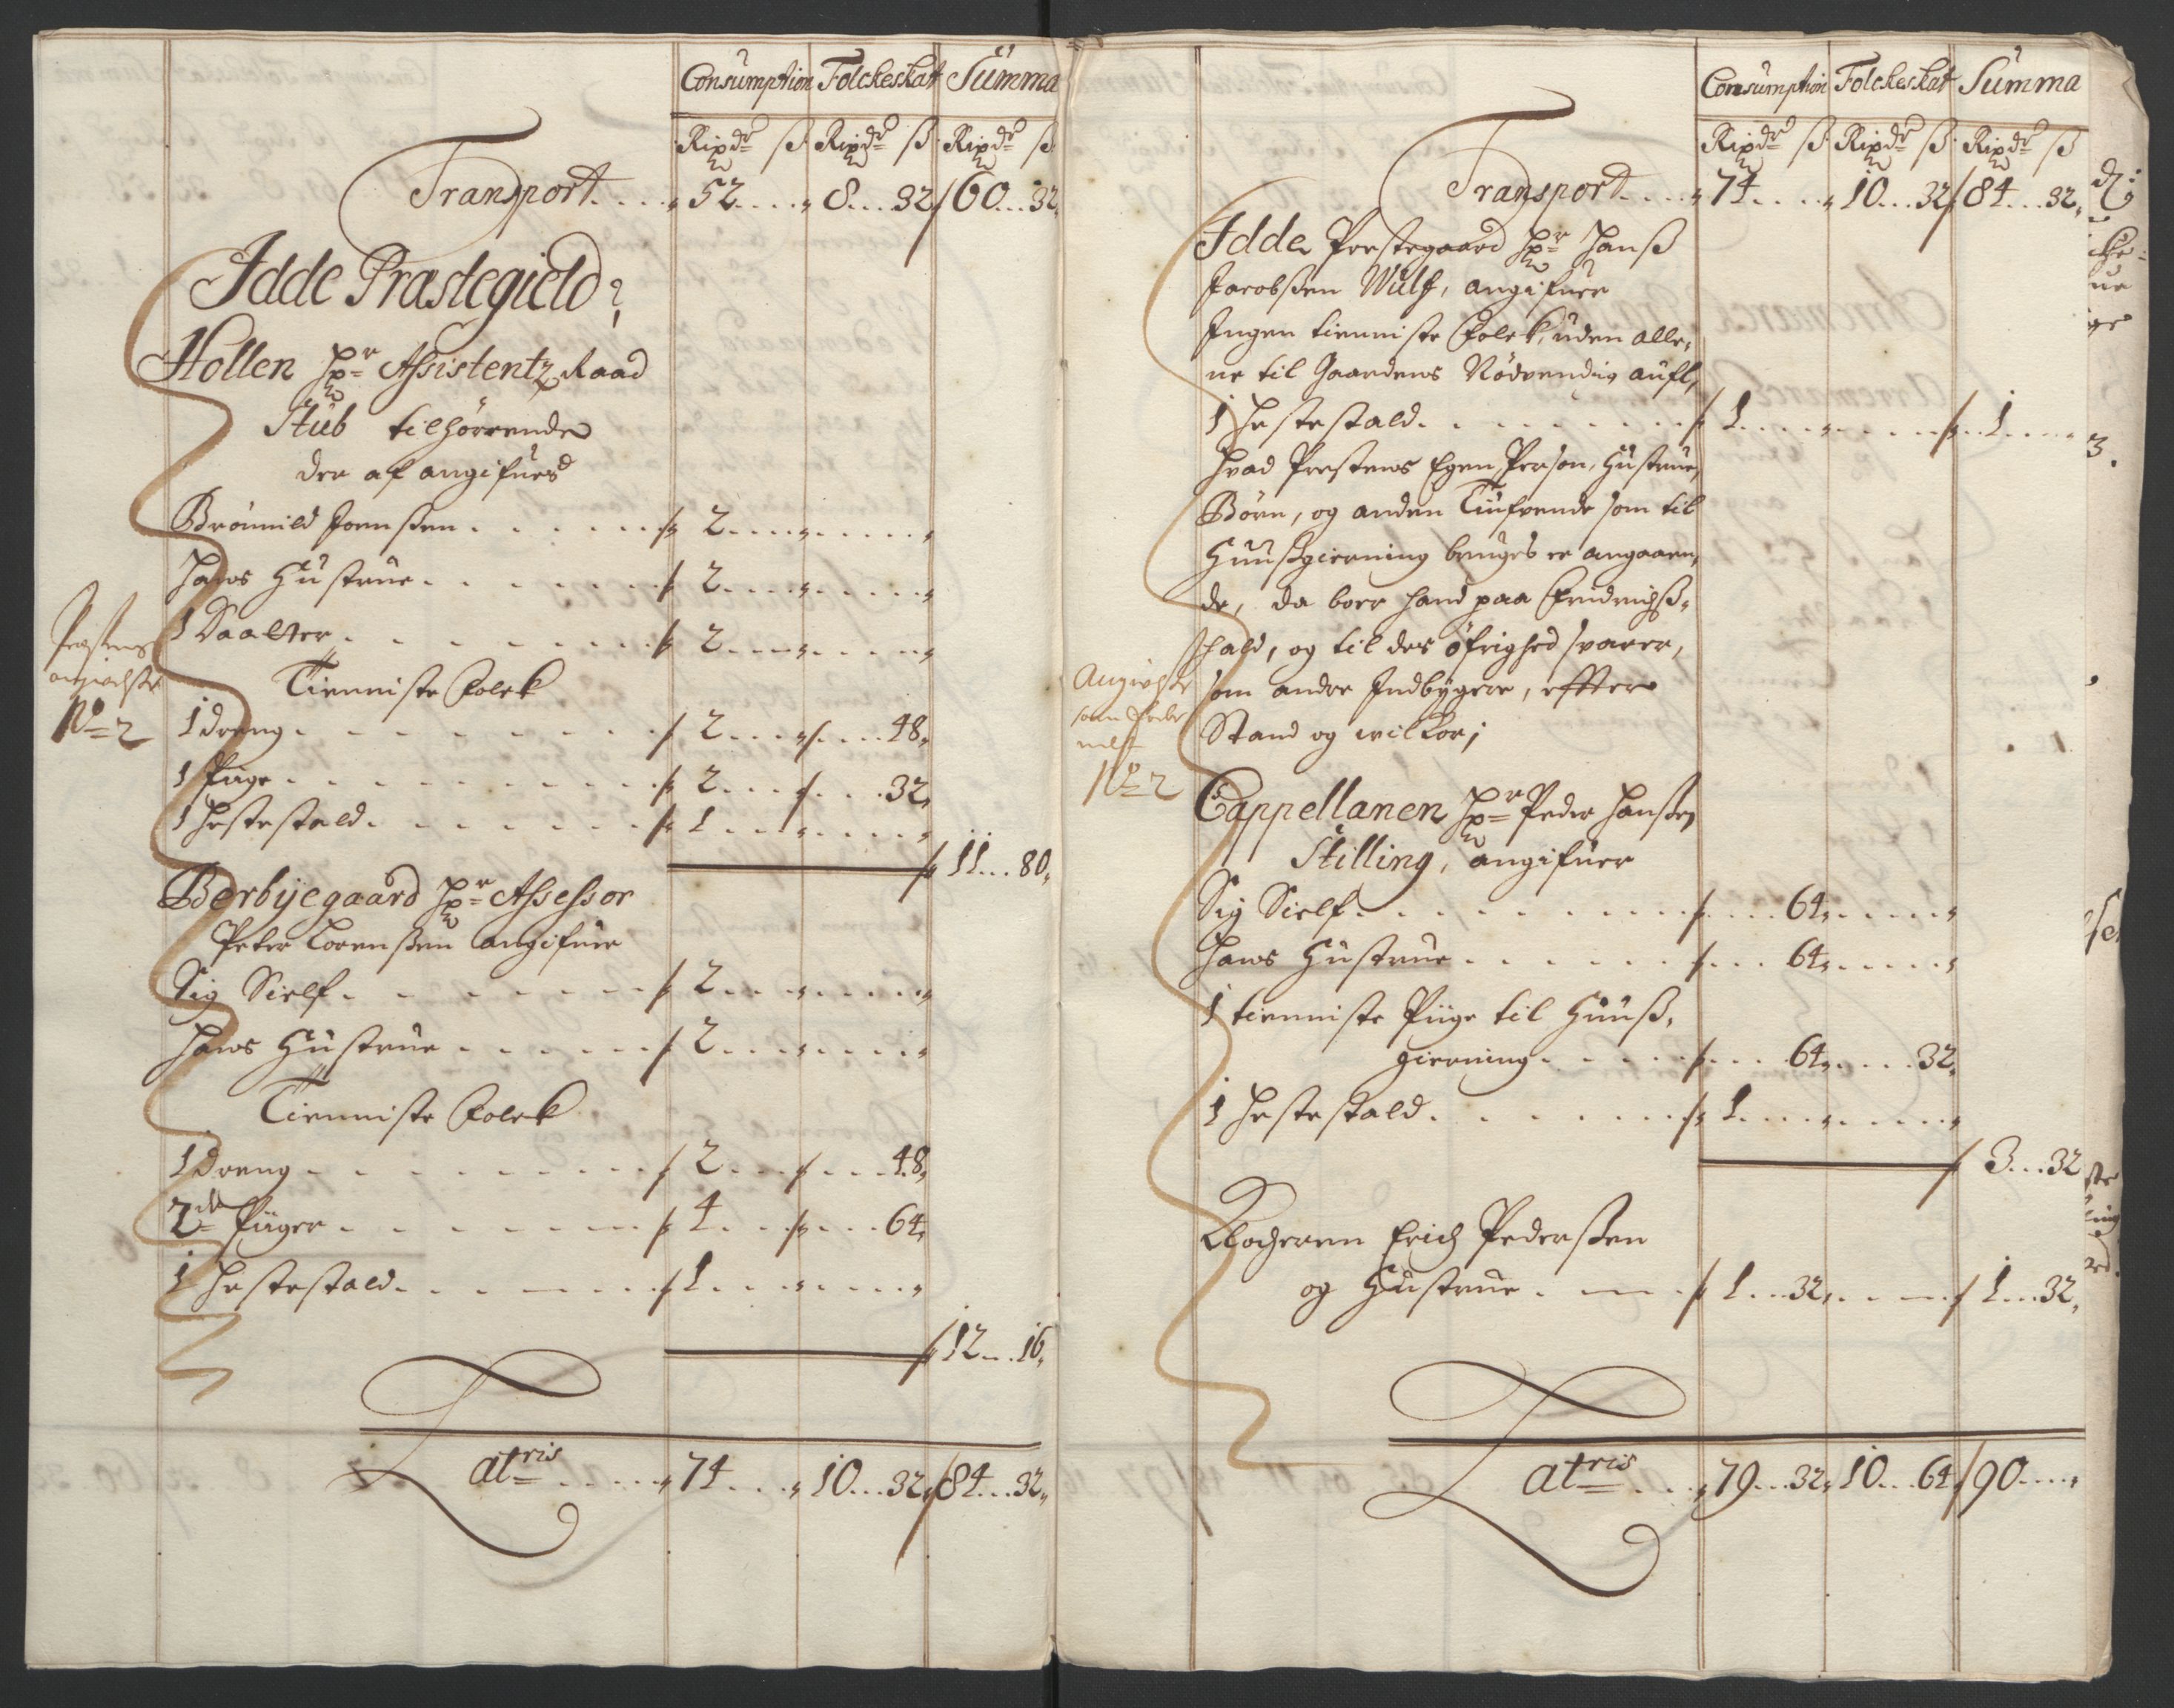 Consumption Folckeskat Summa
Rixdr ß Rixdr ß Rixdr ß
Transport.... 52.... 8...32 60...32
Idde Præstegield
Hollen Hr Assistentz Raad
Stüb tilhørrende
der af angifues
Brönnild Joenßen...... 2.........
Hans Hüstrue....... 2.........
1 Daatter........ 2.........
Tienniste Folck
Præstens
angivelse
No 2
1 dreng........ 2.......48
1 Piige......... 2.......32
1 Hestestald....... 1.........
11...80
Berbÿegaard Hr Assessor
Peter Lorenßen angifuer
Sig Sielf........ 2.........
Hans Hüstrue...... 2.........
Tienniste Folck
1 Dreng......... 2.......48
2de Piiger........ 4.......64
1 Hestestald....... 1.........
12...16
Atris..... 74.... 10...32 84...32
Consumption Folckeskat Summa
Rixdr ß Rixdr ß Rixdr ß
Transport.... 74..... 10...32 84...32
Idde Prestegaard Hr Hanß
Jacobßen Wulf, angifuer
Ingen tienniste Folck, uden alle,
ne til Gaardens Nödvendig aufl,
1 Hestestald......... 1......... 1....
Hvad Prestens Egen Person, Hüstrue,
Börn, og anden Tiufvende som til
Huußgierning bruges er angaaen,
de, da boer hand paa Fridrichß,
hald, og til des öfrighed svarer,
som andre Indbÿgere, effter
Stand og wilkor;
Angivelse
No 2
Cappellanen Hr Peder Hanßen
Stilling, angifuer
Sig Sielf.......... 64......
Hans Hüstrue........ 64......
1 tienniste Piige til Huuß,
gierning....... 64.....32
1 Hestestald........ 1.........
3...32
Klocheren Erich Pederßen
og Hüstrue..... 1...32.... 1...32
Atris.... 79...32 10...64 90....